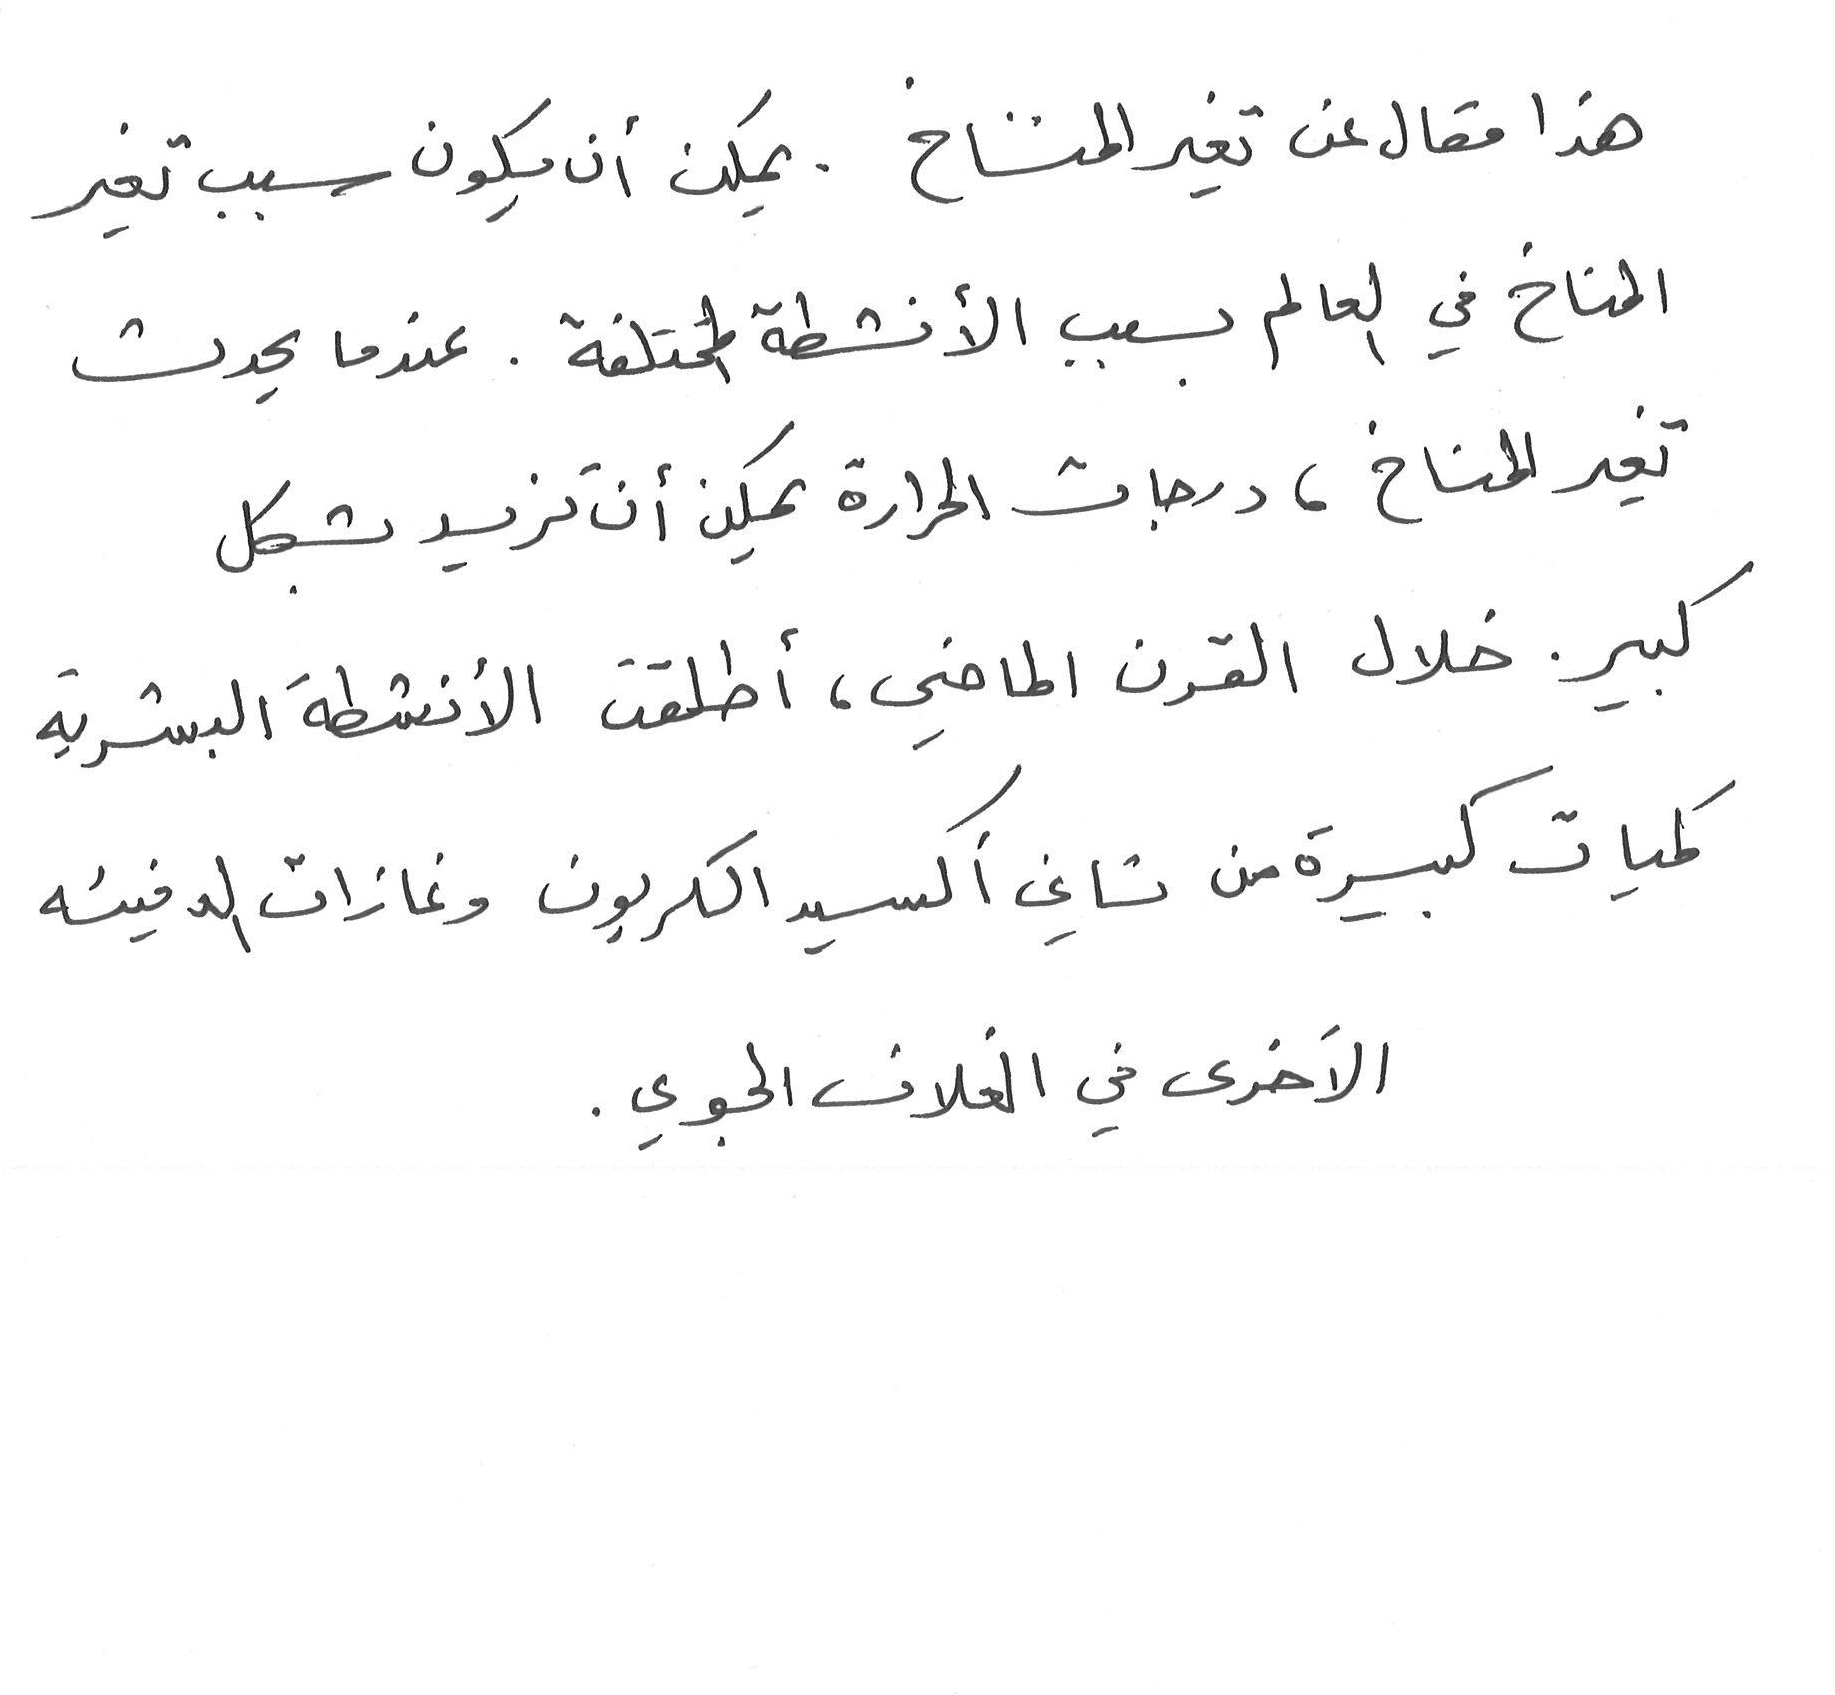 هذا مقال عن تغير المناخ . يمكن أن يكون سبب تغير
المناخ في العالم بسبب الأنشطة المختلفة . عندما يحدث
تغير المناخ ، درجات الحرارة يمكن أن تزيد بشكل
كبير . خلال القرن الماضي ، أطلقت الأنشطة البشرية
كميات كبيرة من ثاني أكسيد الكربون وغازات الدفيئه
الأخرى في الغلاف الجوي .